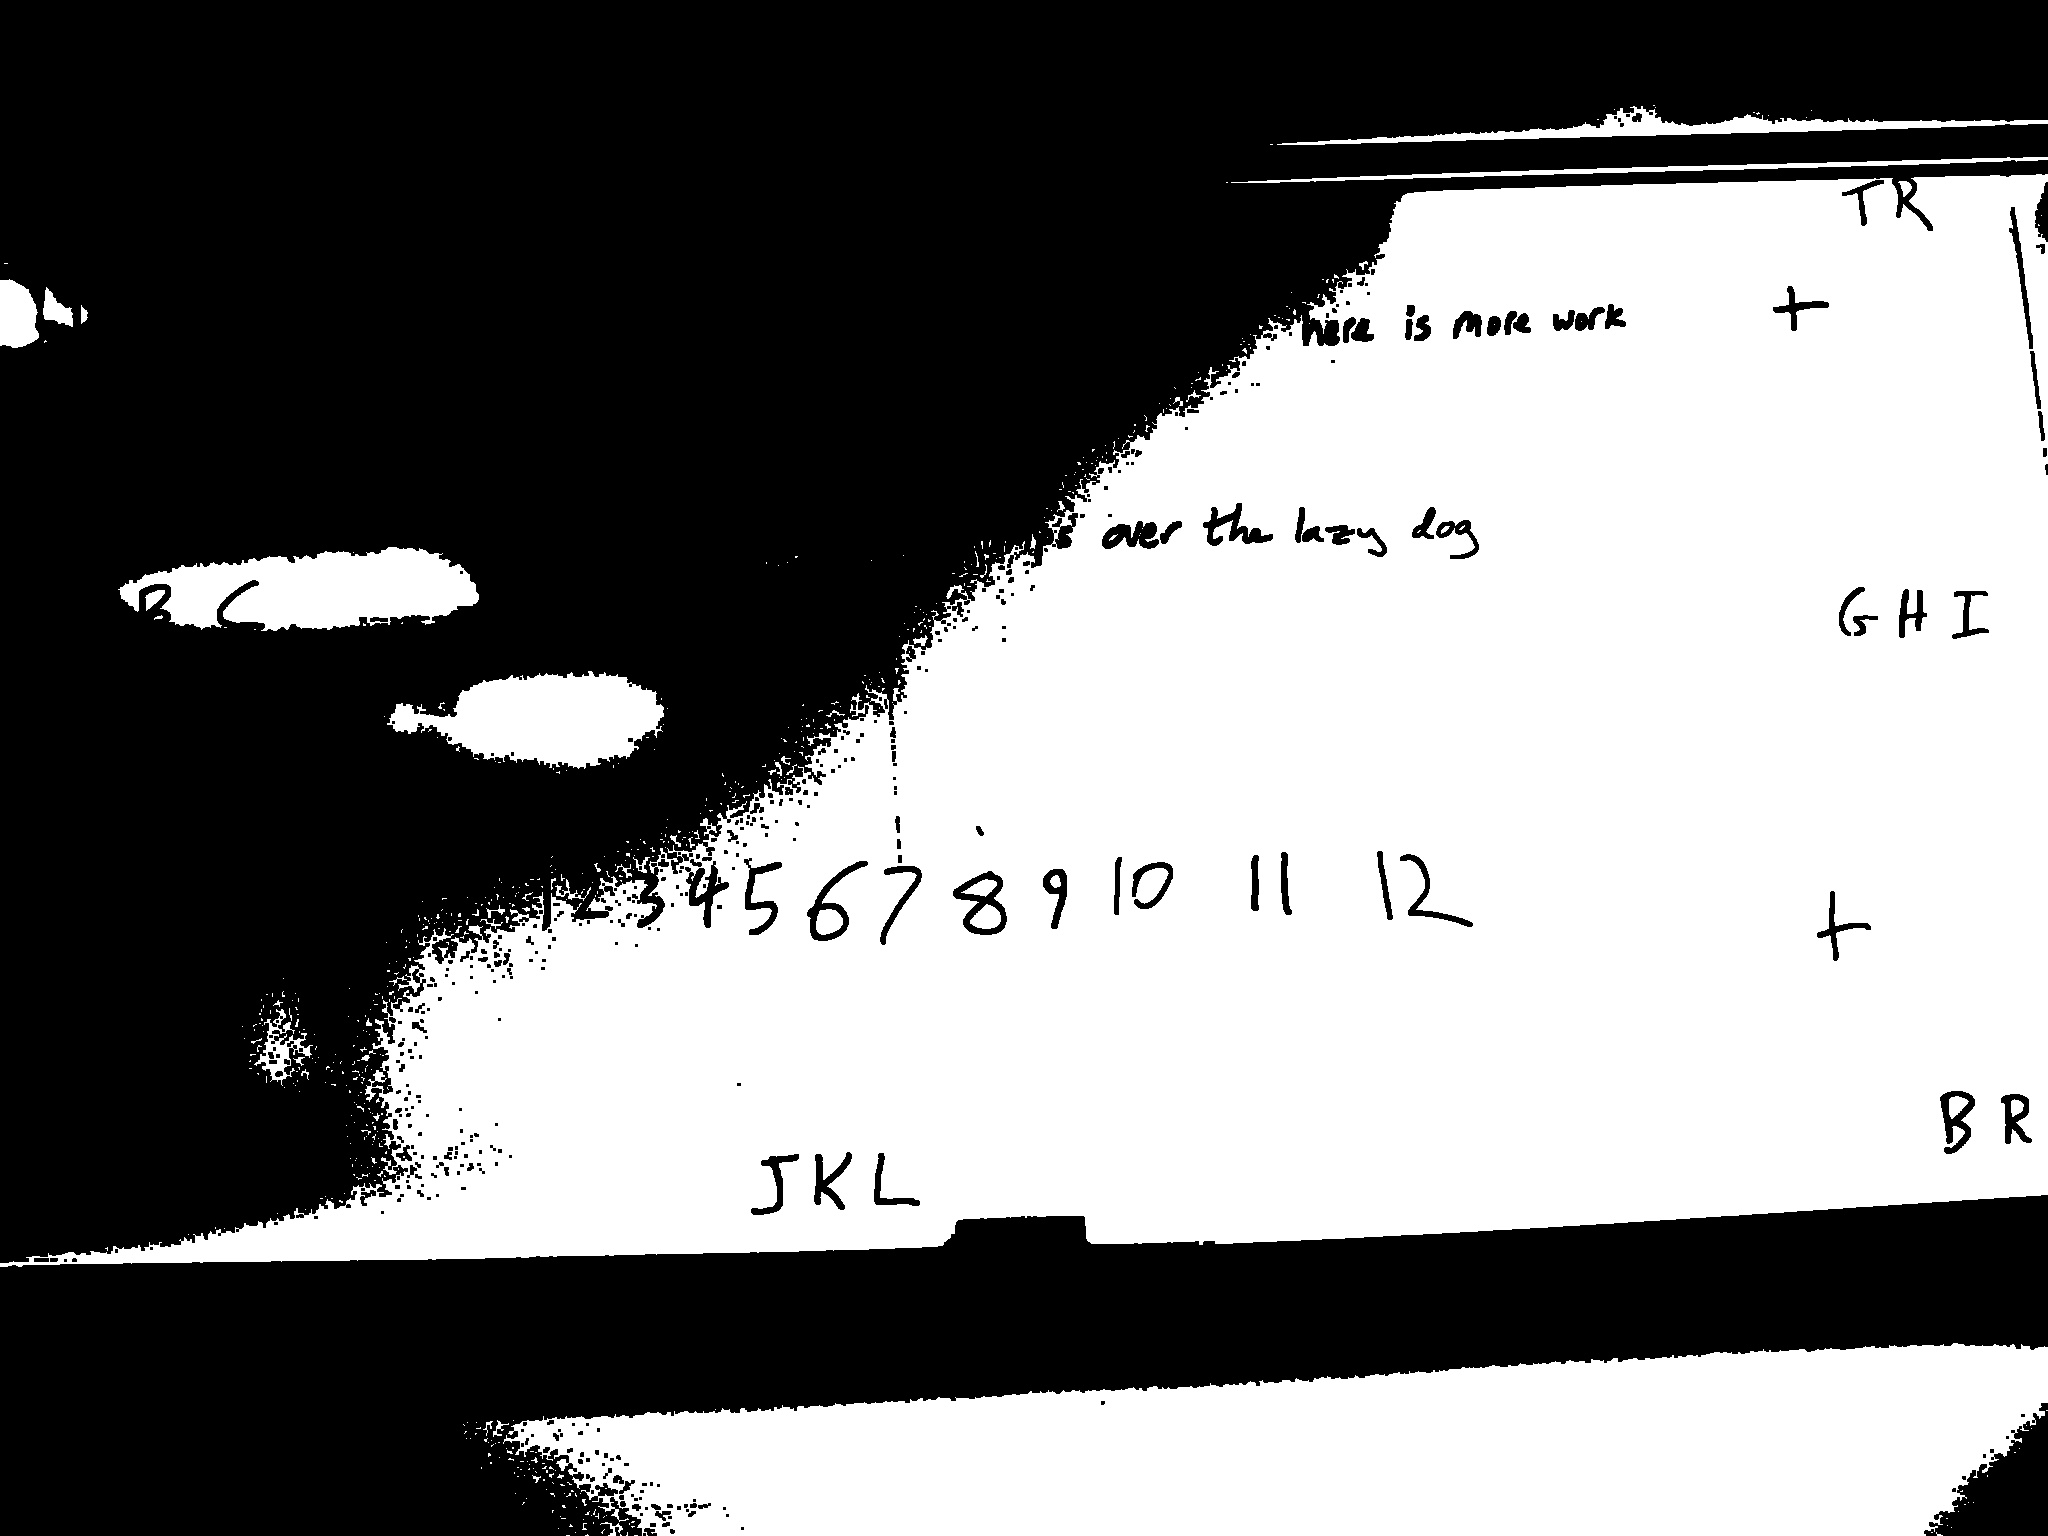 TR
here is more work
over the lazy dog
B C
G H I
1 2 3 4 5 6 7 8 9 10 11 12
BR
JKL